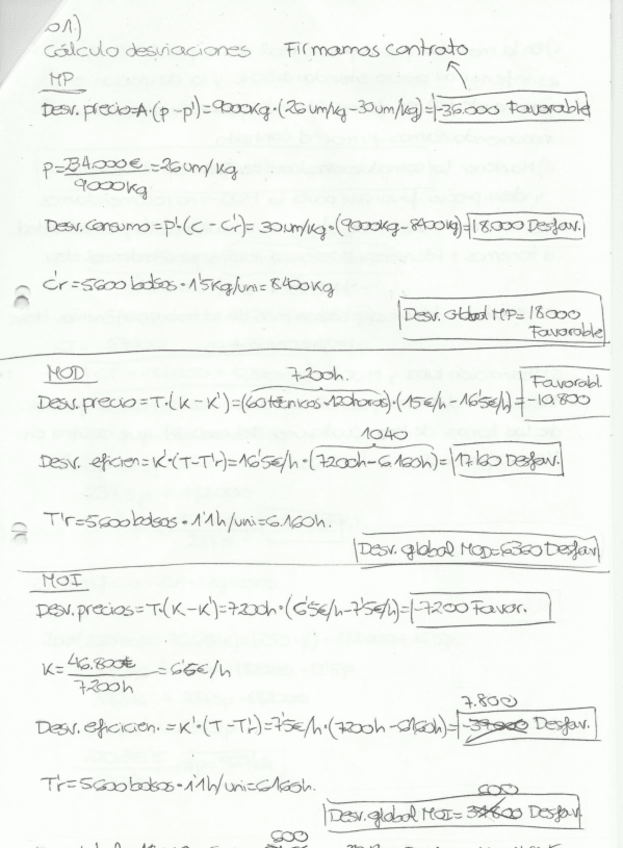 01)
Cálculo desviaciones Firmamos contrato
MP
Desv. precio=A·(p-p')=9000kg·(26um/kg-30um/kg)=-36.000 Favorable
p=234.000€/9000kg=26um/kg
Desv. consumo=p'·(C-C'r)=30um/kg·(9000kg-8400kg)=18.000 Desfav.
C'r=5600 bolsos·1'5kg/uni=8400kg
Desv. Global MP=18000 Favorable
MOD
7.200h.
Desv. precio=T·(K-K')=(60 técnicos·120horas)·(15€/h-16'5€/h)=-10.800 Favorabl.
1040
Desv. eficien=K'·(T-T'r)=16'5€/h·(7200h-6160h)=17.160 Desfav.
T'r=5600 bolsos·1'1h/uni=6.160h.
Desv. global MOD=6360 Desfav
MOI
Desv. precios=T·(K-K')=7200h·(6'5€/h-7'5€/h)=-7200 Favor.
K=46.800€/7200h=6'5€/h
7.800
Desv. eficicien.=K'·(T-T'r)=7'5€/h·(7200h-6160h)= Desfav.
T'r=5600 bolsos·1'1h/uni=6160h.
600
Desv. global MOI= Desfav.
600